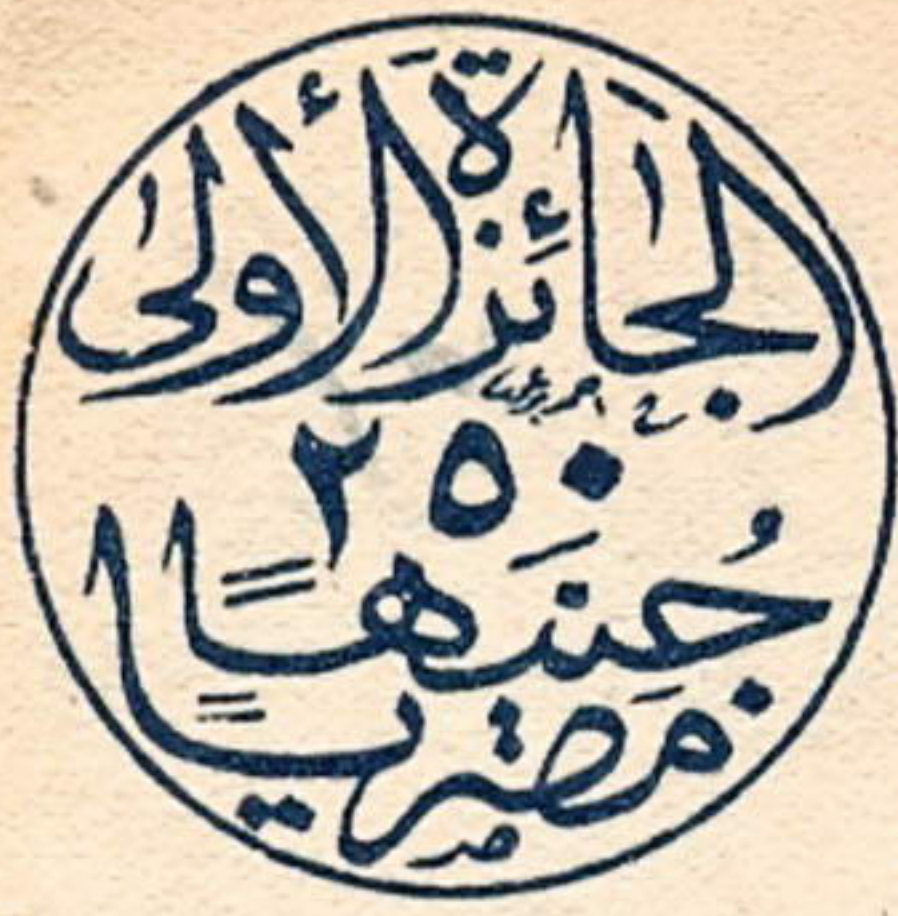 الجَائِزة الأولى
٢٥٠
جُنَيهًا
مَصريًا